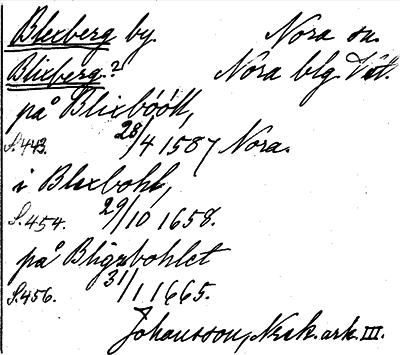 Blexberg by. Nora sn.
Blixberg? Nora blg Vstm.
på Blixbóótt,
S.443. 28/4 1587 Nora.
i Blexbohl,
S.454. 29/10 1658.
på Bligsbohlet
S.456. 31/1 1665.
Johansson, Nosk. ark. III.